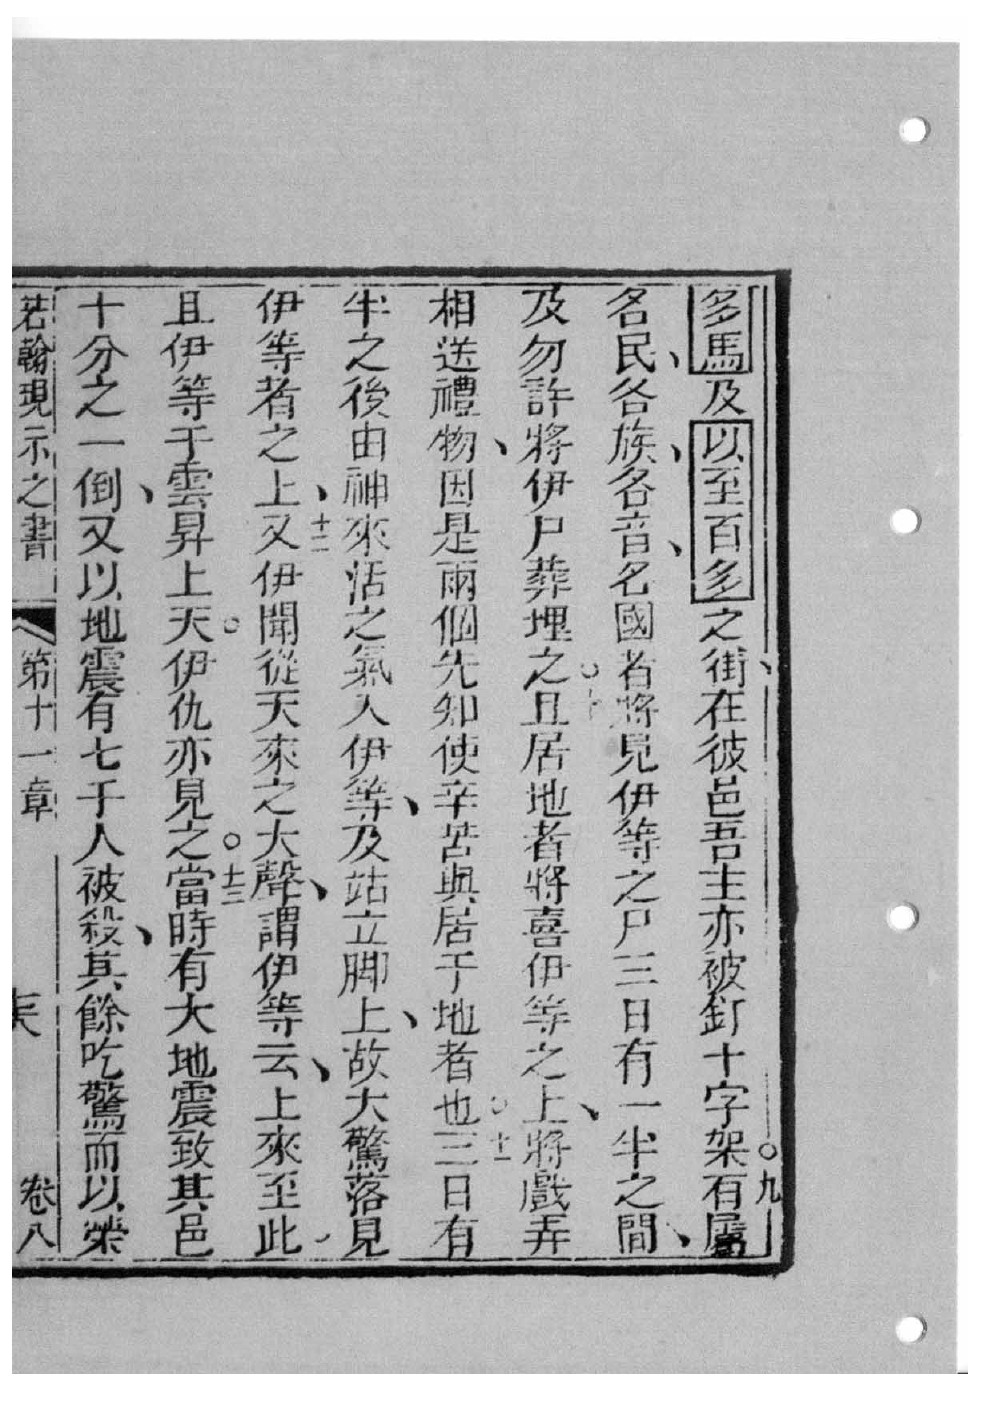 多馬及以至百多之街、在彼邑吾主亦被釘十字架。九有屬
各民、各族、各音、名國者將見伊等之尸三日有一半之間、
及勿許將伊尸葬埋之。十且居地者將喜伊等之上、將戲弄
相送禮物、因是兩個先知使辛苦與居于地者也。十一三日有
半之後由神來活之氣入伊等、及站立脚上、故大驚落見
伊等者之上、十二又伊聞從天來之大聲、謂伊等云、上來至此
且伊等于雲昇上天。伊仇亦見之。十三當時有大地震致其邑
十分之一倒、又以地震有七千人被殺、其餘吃驚而以榮
若翰現示之書 第十一章 卷八